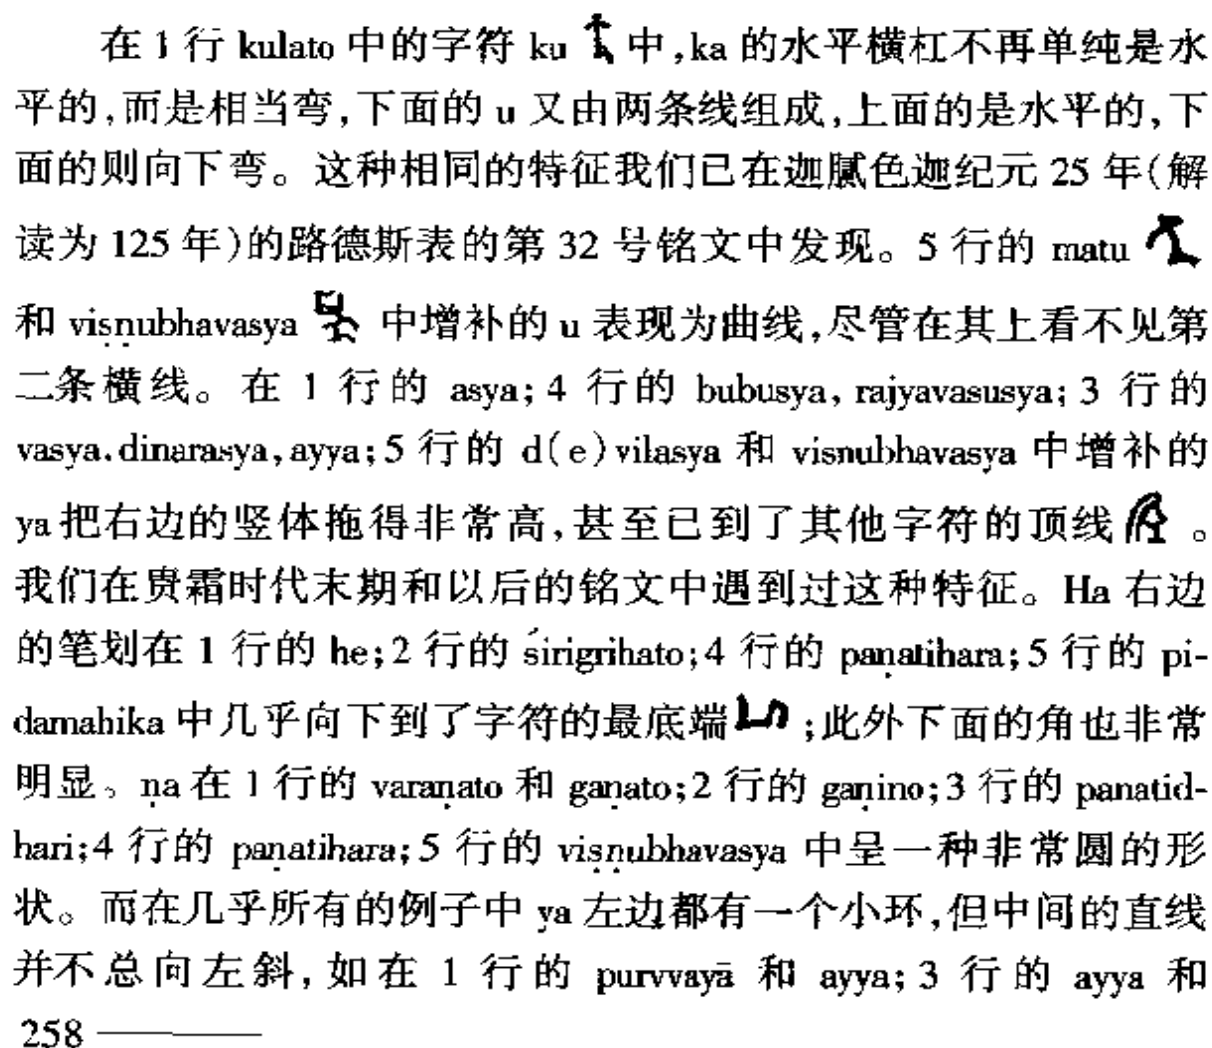 在 1 行 kulato 中的字符 ku 中,ka 的水平横杠不再单纯是水
平的,而是相当弯,下面的 u 又由两条线组成,上面的是水平的,下
面的则向下弯。这种相同的特征我们已在迦腻色迦纪元 25 年(解
读为 125 年)的路德斯表的第 32 号铭文中发现。5 行的 matu
和 viṣṇubhavasya 中增补的 u 表现为曲线,尽管在其上看不见第
二条横线。在 1 行的 asya;4 行的 bubusya, rajyavasusya;3 行的
vasya.dinarasya,ayya;5 行的 d(e)vilasya 和 visnubhavasya 中增补的
ya 把右边的竖体拖得非常高,甚至已到了其他字符的顶线 。
我们在贵霜时代末期和以后的铭文中遇到过这种特征。Ha 右边
的笔划在 1 行的 he;2 行的 śirigrihato;4 行的 paṇatihara;5 行的 pi-
damahika 中几乎向下到了字符的最底端 ;此外下面的角也非常
明显。ṇa 在 1 行的 varaṇato 和 gaṇato;2 行的 gaṇino;3 行的 panatid-
hari;4 行的 paṇatihara;5 行的 viṣṇubhavasya 中呈一种非常圆的形
状。而在几乎所有的例子中 ya 左边都有一个小环,但中间的直线
并不总向左斜,如在 1 行的 purvvayā 和 ayya;3 行的 ayya 和
258